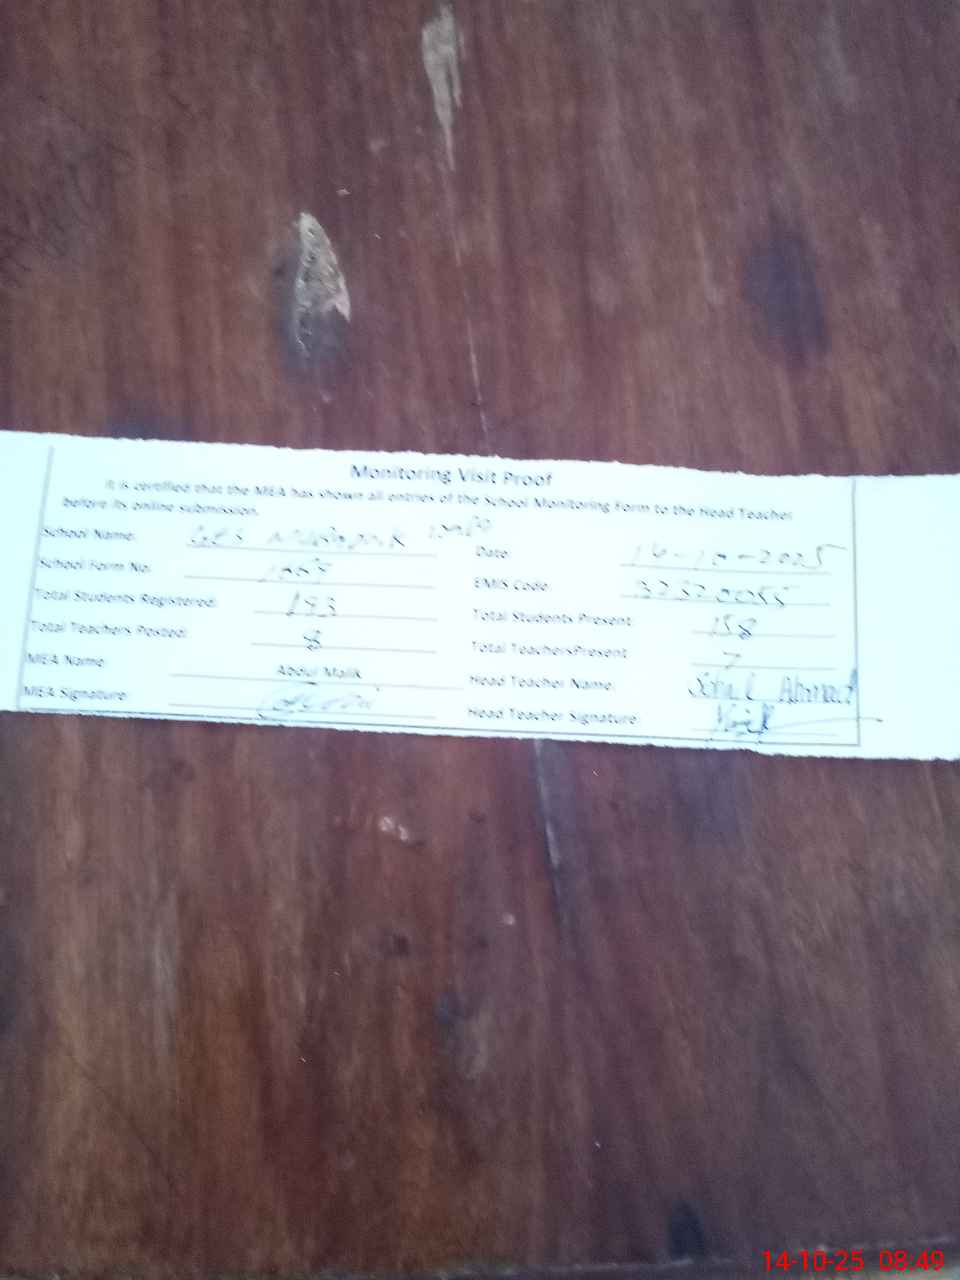 Monitoring Visit Proof
It is certified that the MEA has shown all entries of the School Monitoring Form to the Head Teacher
before its online submission.
School Name: GES
Date 14-10-2025
School Form No:
EMIS Code: 32320055
Total Students Registered: 193
Total Students Present 158
Total Teachers Posted: 8
Total TeachersPresent 7
MEA Name: Abdul Malik
Head Teacher Name: Ahmad
MEA Signature:
Head Teacher Signature
14-10-25 08:49